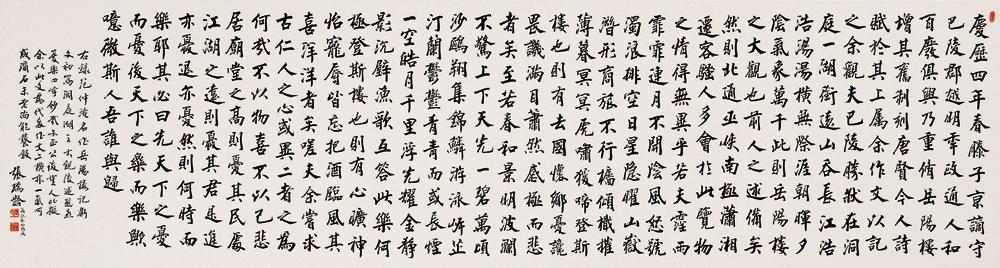 慶曆四年春滕子京謫守
巴陵郡越明年政通人和
百廢俱興乃重脩岳陽樓
增其舊制刻唐賢今人詩
賦於其上屬余作文以記
之余觀夫巴陵勝狀在洞
庭一湖銜遠山吞長江浩
浩湯湯橫無際涯朝暉夕
陰氣象萬千此則岳陽樓
之大觀也前人之述備矣
然則北通巫峽南極瀟湘
遷客騷人多會於此覽物
之情得無異乎若夫霪雨
霏霏連月不開陰風怒號
濁浪排空日星隱曜山嶽
潛形商旅不行檣傾檝摧
薄暮冥冥虎嘯猿啼登斯
樓也則有去國懷鄉憂讒
畏譏滿目蕭然感極而悲
者矣至若春和景明波瀾
不驚上下天光一碧萬頃
沙鷗翔集錦鱗游泳岸芷
汀蘭鬱鬱青青而或長煙
一空皓月千里浮光耀金靜
影沉璧漁歌互答此樂何
極登斯樓也則有心曠神
怡寵辱皆忘把酒臨風其
喜洋洋者矣嗟夫余嘗求
古仁人之心或異二者之為
何哉不以物喜不以己悲
居廟堂之高則憂其民處
江湖之遠則憂其君是進
亦憂退亦憂然則何時而
樂耶其必曰先天下之憂
而憂後天下之樂而樂歟
噫微斯人吾誰與歸
右錄范仲淹名作岳陽樓記